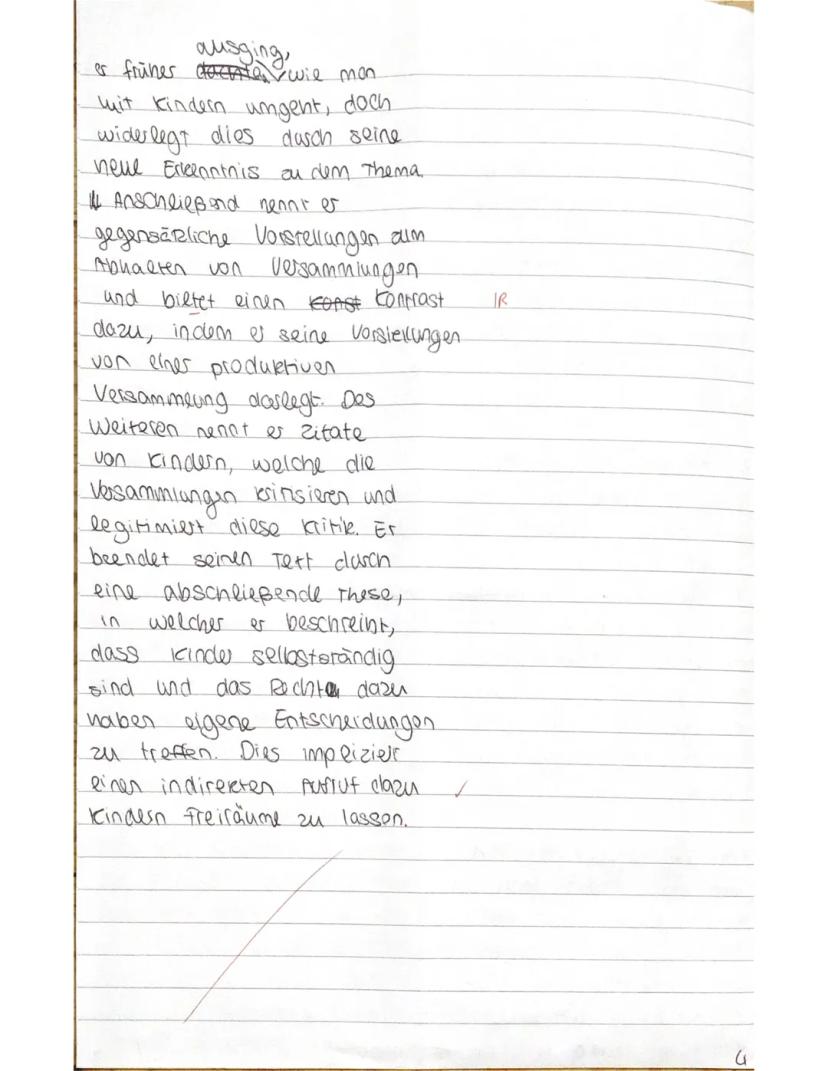 ausging,
er früher dachte, wie man
mit Kindern umgeht, doch
widerlegt dies durch seine
neue Erkenntnis zu dem Thema.
Anschließend nennt er
gegensätzliche Vorstellungen zum
Abhalten von Versammlungen
und bietet einen Konst Kontrast IR
dazu, indem er seine Vorstellungen
von einer produktiven
Versammlung darlegt. Des
Weiteren nennt er Zitate
von Kindern, welche die
Versammlungen kritisieren und
legitimiert diese Kritik. Er
beendet seinen Text durch
eine abschließende These,
in welcher er beschreibt,
dass Kinder selbstständig
sind und das Recht dazu
haben eigene Entscheidungen
zu treffen. Dies impliziert
einen indirekten Aufruf dazu ✓
Kindern Freiräume zu lassen.
4